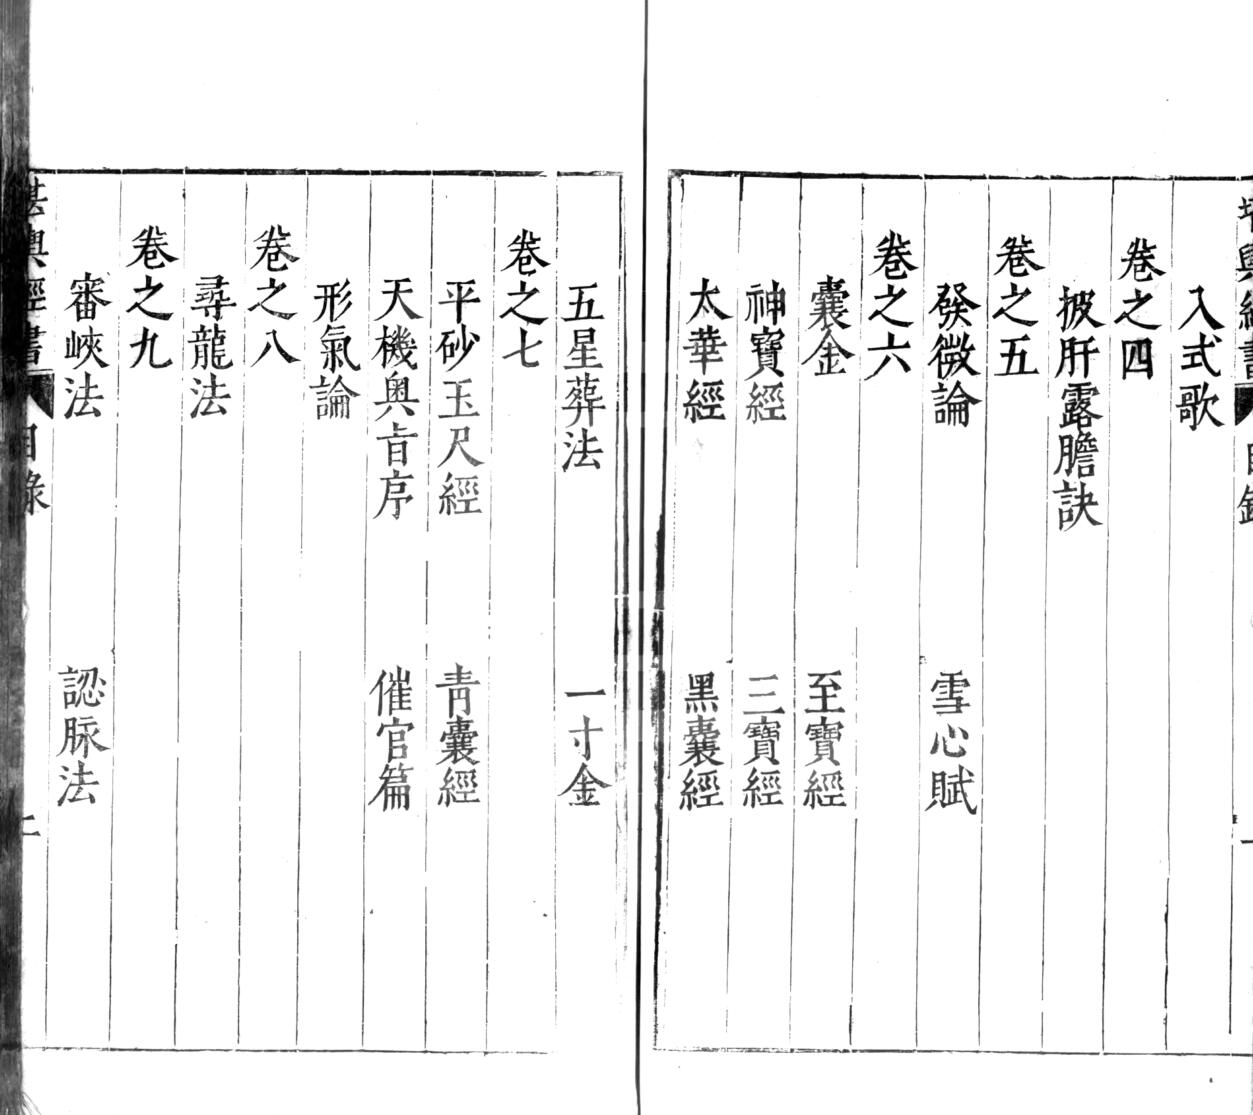 入式歌
卷之四
披肝露膽訣
卷之五
發微論 雪心賦
卷之六
囊金 至寶經
神寶經 三寶經
太華經 黑囊經
五星葬法 一寸金
卷之七
平砂玉尺經 青囊經
天機奧旨序 催官篇
形氣論
卷之八
尋龍法
卷之九
審峽法 認脉法
堪輿經書 目錄 二